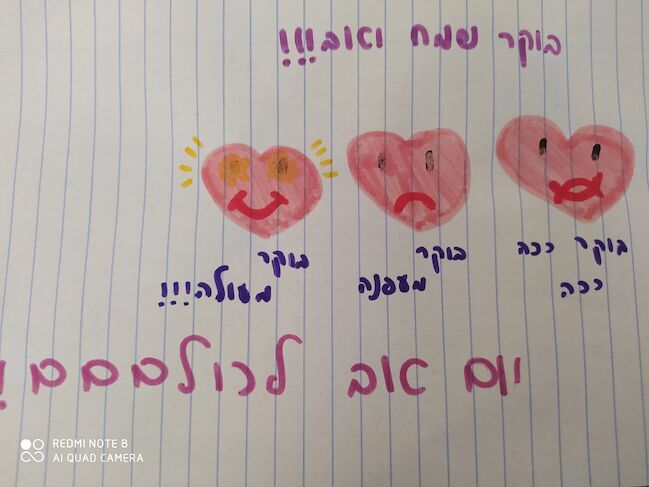 בוקר שמח וטוב!!!
בוקר ככה
ככה
בוקר
מעפנה
בוקר
מעולה!!!
יום טוב לכולםםםם!
REDMI NOTE 8
AI QUAD CAMERA